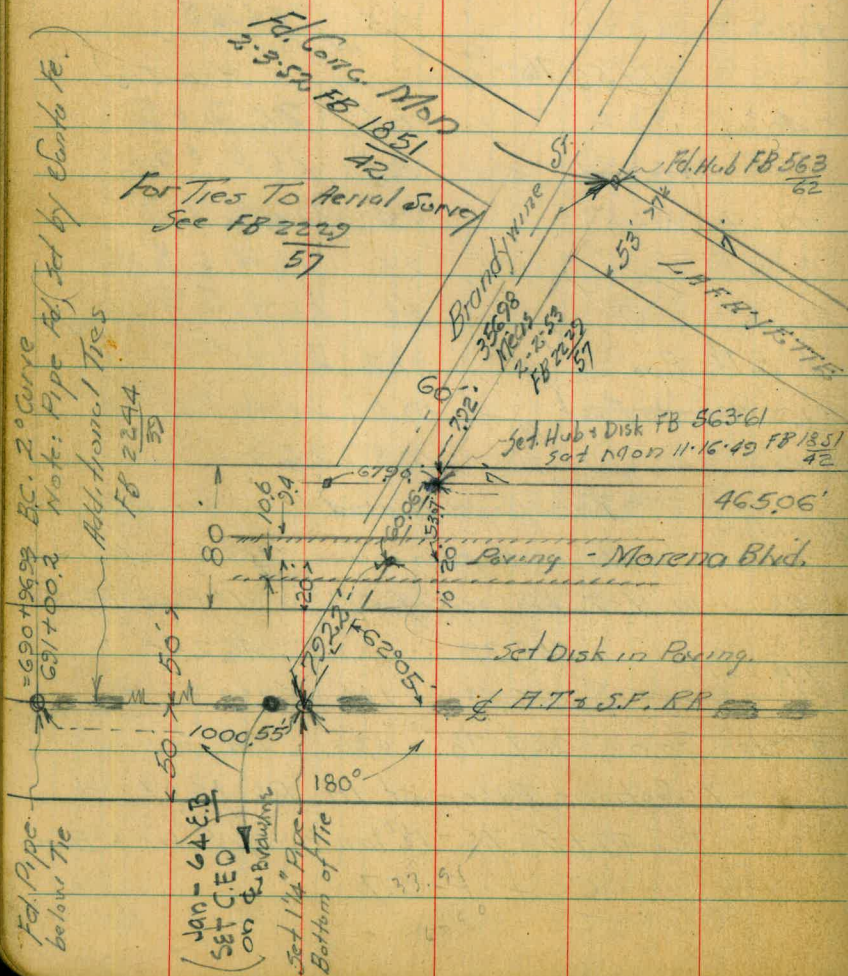 Fd. Conc. Mon
2-3-52 FB 1851
42
For Ties To Aerial Survey
See FB 2229
57
Fd. Hub FB 563
62
Brandywine St.
53'
7'
LAFAYETTE
356.98
Meas
2-2-53
FB 2229
57
60'
7.92'
Set Hub & Disk FB 563-61
Set Mon 11-16-49 FB 1851
42
7'
465.06'
67.90
60.06'
53.07
80'
10.6
9.4
20
20
10
Paving - Morena Blvd.
79.22'
62°05'
Set Disk in Paving.
₵ A.T & S.F. RR
1000.55'
180°
50'
50'
=690+96.99 B.C. 2° Curve
691+00.2 Note: Pipe Fd. (Set by Santa Fe.)
Additional Ties
FB 2244
39
Fd. Pipe
below Tie
(Jan-64 E.B
SET C.ED
on ₵ Brandywine
Set 1¼" Pipe
Bottom of Tie